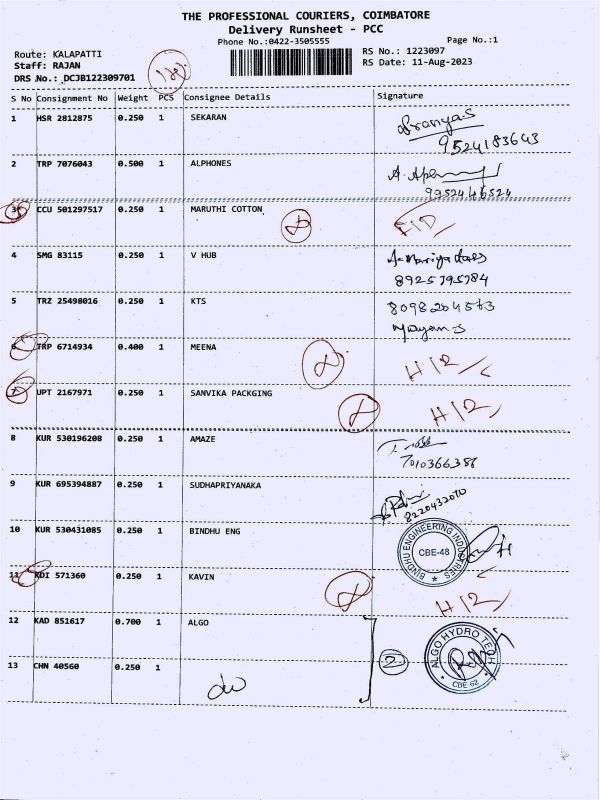 THE PROFESSIONAL COURIERS, COIMBATORE
Delivery Runsheet - PCC
Phone No.:0422-3505555
Page No.:1
Route: KALAPATTI
RS No.: 1223097
Staff: RAJAN
RS Date: 11-Aug-2023
DRS No.: DCJB122309701
S No Consignment No Weight PCS Consignee Details Signature
1 HSR 2812875 0.250 1 SEKARAN
9524183643
2 TRP 7076043 0.500 1 ALPHONES
9952445524
3 CCU 501297517 0.250 1 MARUTHI COTTON
4 SMG 83115 0.250 1 V HUB
8925795984
5 TRZ 25498016 0.250 1 KTS
8098204573
6 TRP 6714934 0.400 1 MEENA
H12
7 UPT 2167971 0.250 1 SANVIKA PACKGING
H12
8 KUR 530196208 0.250 1 AMAZE
7010366386
9 KUR 695394887 0.250 1 SUDHAPRIYANAKA
8220432070
10 KUR 530431085 0.250 1 BINDHU ENG
BINDHU ENGINEERING INDUSTRIES
CBE-48
11 KDI 571360 0.250 1 KAVIN
H12
12 KAD 851617 0.700 1 ALGO
ALGO HYDRO TECH
CBE-62
2
13 CHN 40560 0.250 1
do